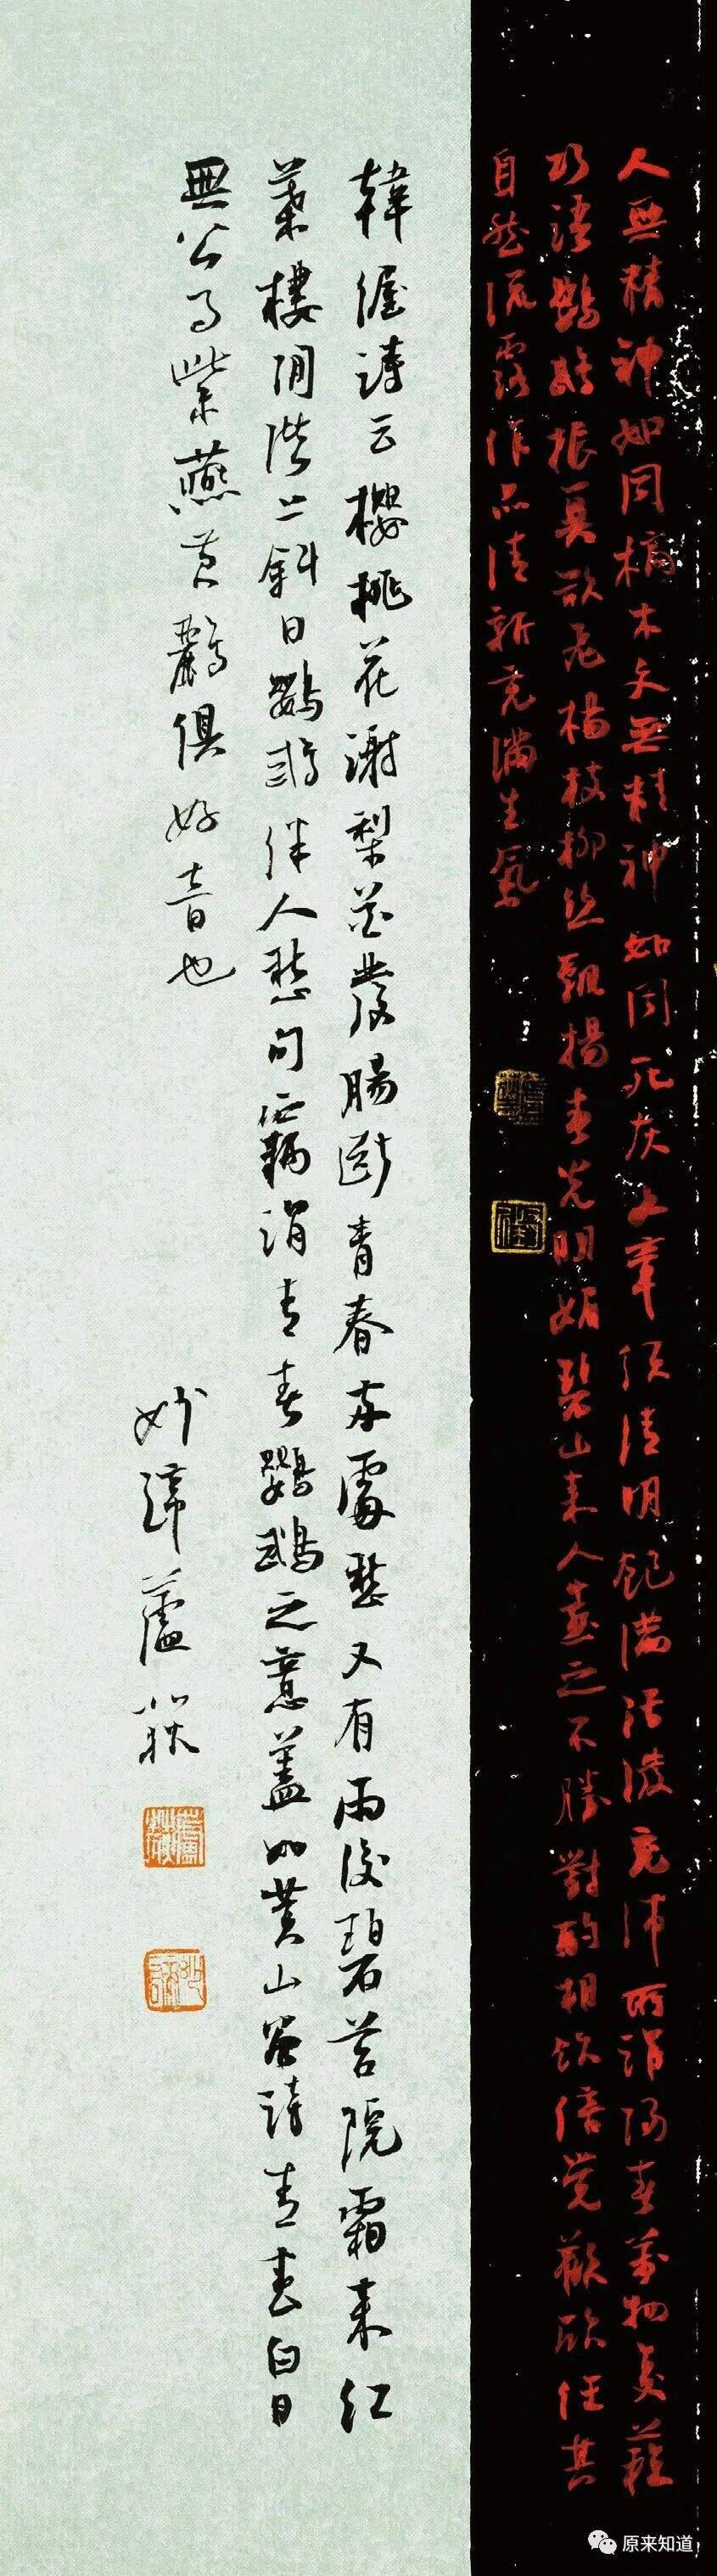 人無精神如同槁木文無精神如同死灰文章須清明飽滿活潑充沛所謂陽春萬物多蘇
巧語鸚鵡振翼欲飛楊枝柳絲飄揚春光明媚碧山来人畫之不勝對酌相飲倍覺歡欣任其
自然流露作品清新充滿生氣
韓偓詩云櫻桃花謝梨花發腸斷青春兩處愁又有雨後碧苔院霜来紅
葉樓閒階上斜日鸚鵡伴人愁句竊謂青春鸚鵡之意蓋如黃山谷詩青春白日
無公事紫燕黃鸝俱好音也
妙諦蘆荻
原来知道